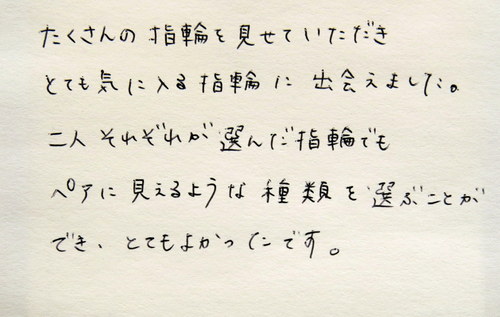 たくさんの指輪を見せていただき
とても気に入る指輪に出会えました。
二人それぞれが選んだ指輪でも
ペアに見えるような種類を選ぶことが
でき、とてもよかったです。